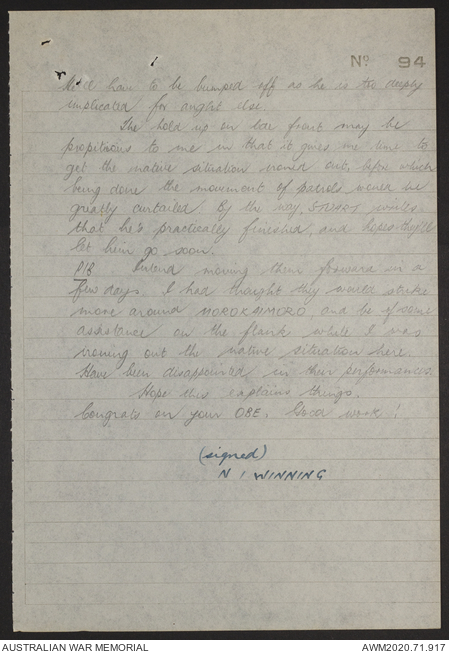 No 94
He'll have to be bumped off as he is too deeply
implicated for aught else.
The hold up on the front may be
propitious to me in that it gives me time to
get the native situation ironed out, before which
being done the movement of patrols would be
greatly curtailed. By the way, STUART writes
that he's practically finished, and hopes they'll
let him go soon.
PIB. Intend moving them forward in a
few days. I had thought they would strike
more around MOROKAIMORO, and be of some
assistance on the flank while I was
ironing out the native situation here.
Have been disappointed in their performances.
Hope this explains things.
Congrats on your OBE. Good work!
(signed)
N I WINNING
AUSTRALIAN WAR MEMORIAL
AWM2020.71.917